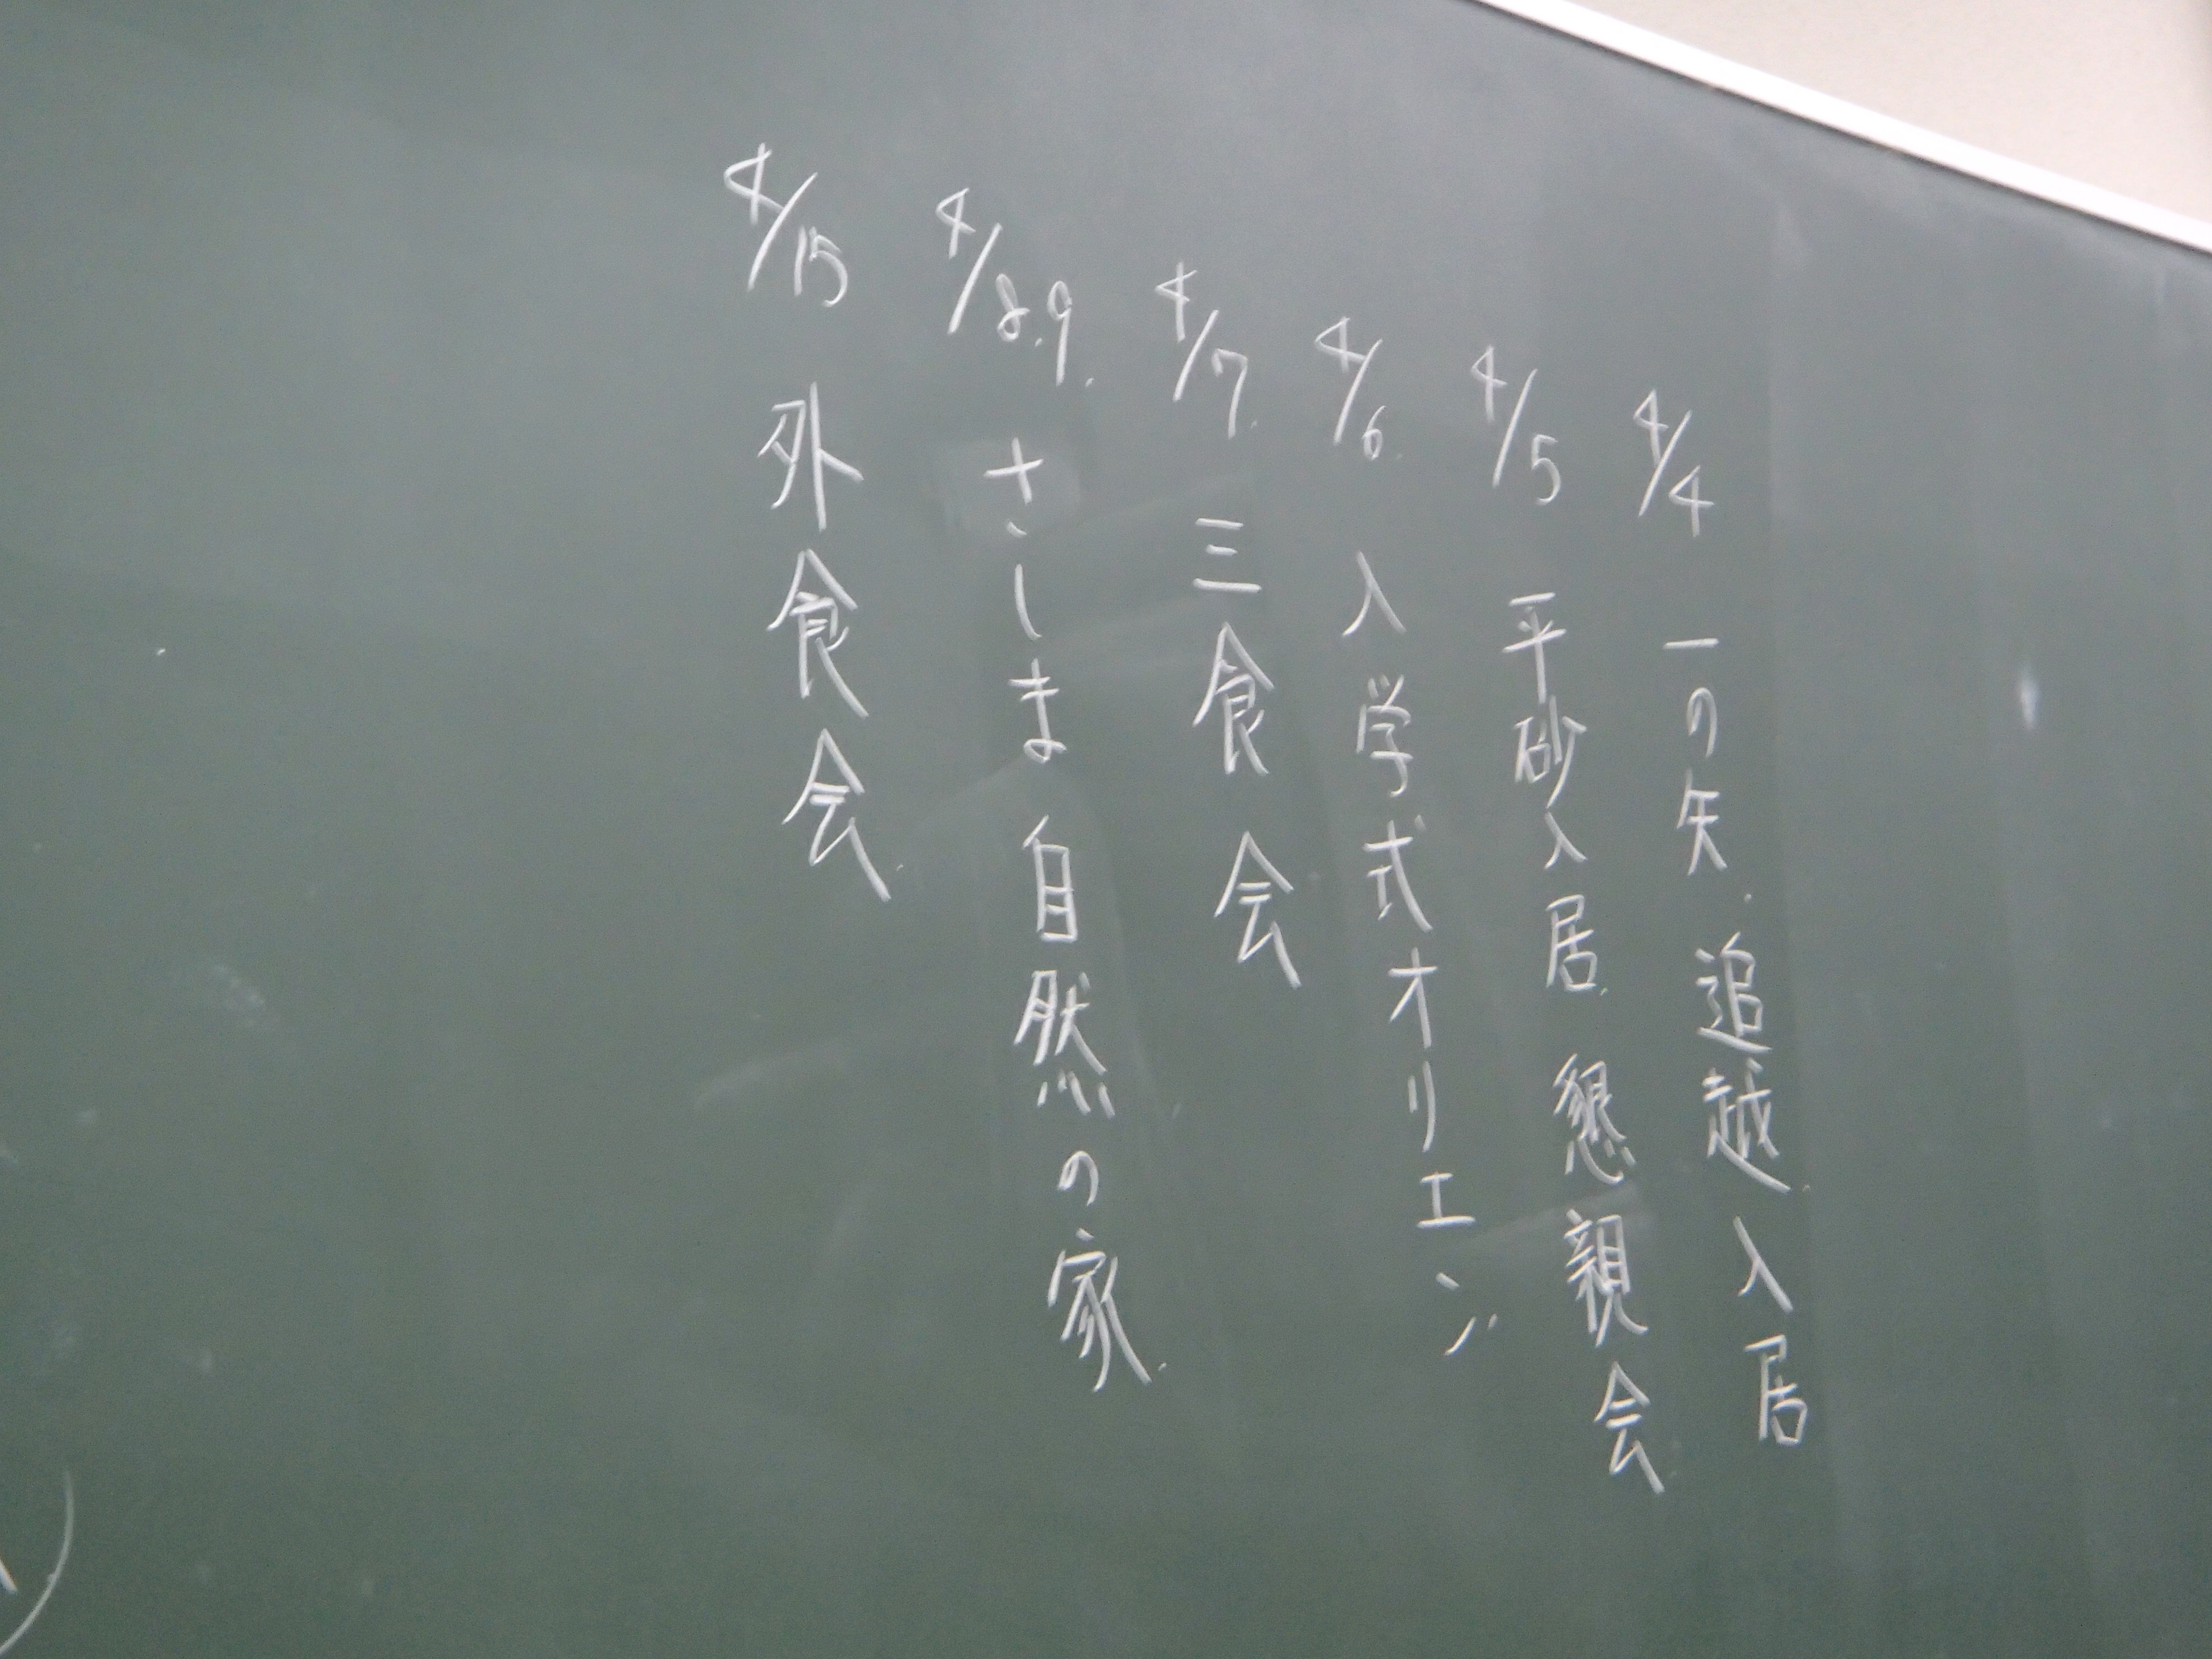 4/4 一の矢.追越 入居
4/5 平砂入居 懇親会
4/6 入学式オリエン
4/7 三食会
4/8.9. さしま自然の家
4/15 外食会